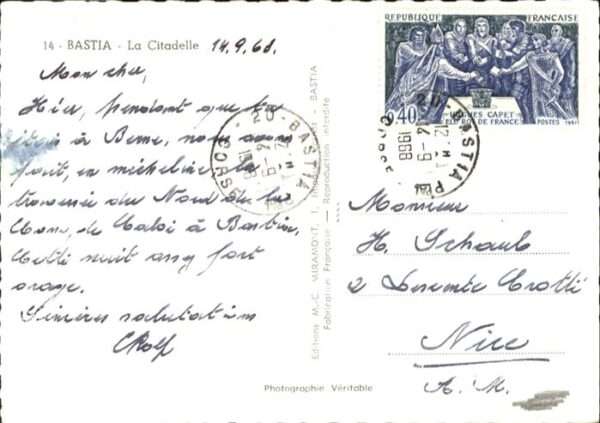 14 - BASTIA - La Citadelle
14.9.68.
Mon cher,
Hier, pendant que tu
étais à Berne, nous avons
fait, en micheline, la
traversée du Nord de la
Corse, de Calvi à Bastia.
Cette nuit assez fort
orage.
Sincères salutations
Rolf
Editions M.-C. MIRAMONT, - BASTIA
Fabrication Française - Reproduction interdite
Photographie Véritable
RÉPUBLIQUE FRANÇAISE
0,40
HUGUES CAPET
ELU ROI DE FRANCE
POSTES 1967
BASTIA
CORSE
BASTIA
14 - 9
1968
CORSE
Monsieur
H. Schaub
2 Descente Crotti
Nice
A. M.